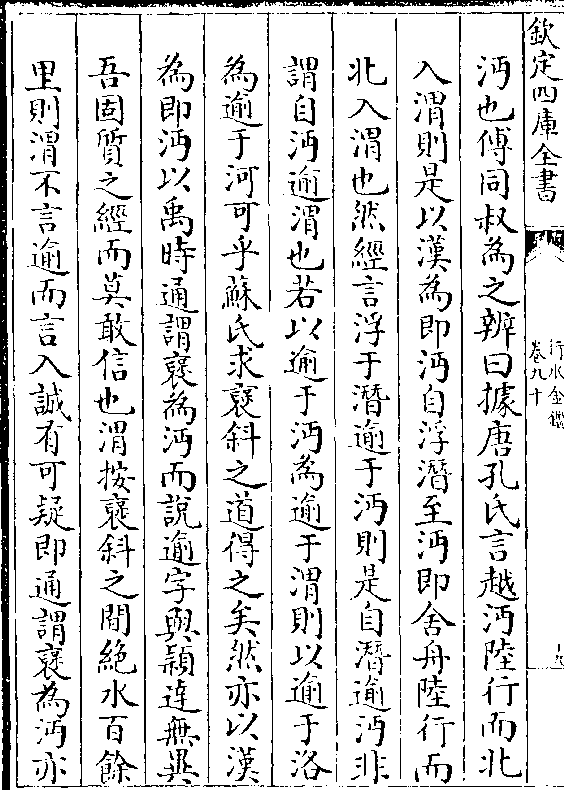 欽定四庫全書
行水金鑑
卷九十
十九
沔也傅同叔為之辨曰據唐孔氏言越沔陸行而北
入渭則是以漢為即沔自浮潛至沔即舍舟陸行而
北入渭也然經言浮于潛逾于沔則是自潛逾沔非
謂自沔逾渭也若以逾于沔為逾于渭則以逾于洛
為逾于河可乎蘇氏求褒斜之道得之矣然亦以漢
為即沔以禹時通謂褒為沔而說逾字與穎達無異
吾固質之經而莫敢信也渭按褒斜之間絶水百餘
里則渭不言逾而言入誠有可疑即通謂褒為沔亦